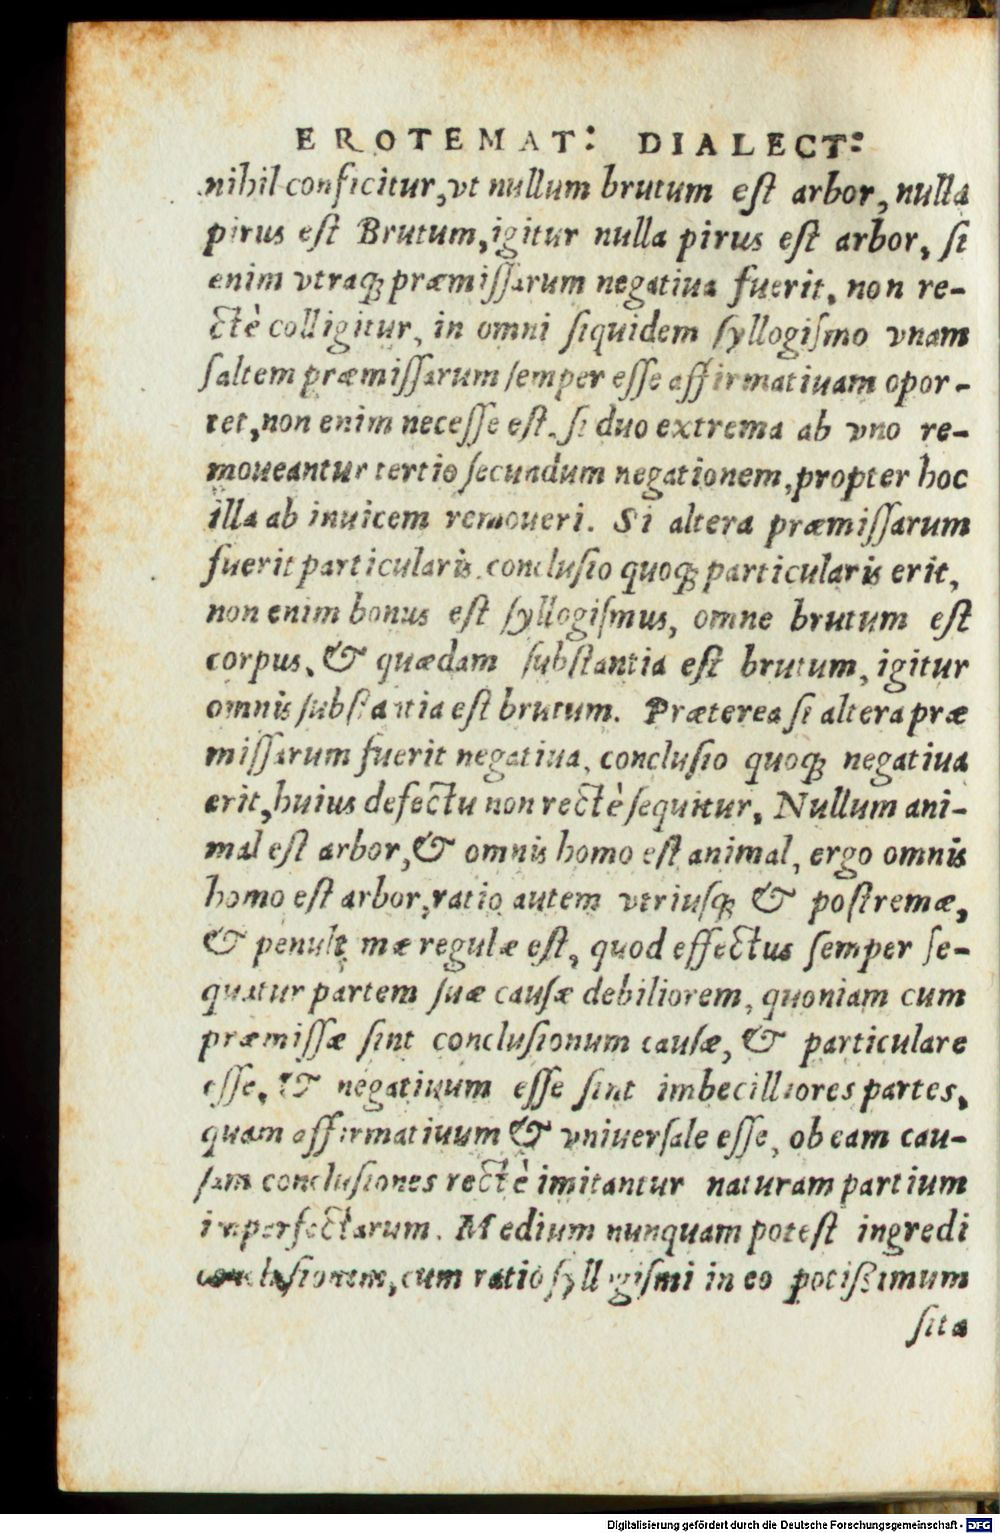 EROTEMAT: DIALECT:
nihil conficitur, vt nullum brutum eſt arbor, nulla
pirus eſt Brutum, igitur nulla pirus eſt arbor, ſi
enim vtraq; præmiſſarum negatiua fuerit, non re-
ctè colligitur, in omni ſiquidem ſyllogiſmo vnam
ſaltem præmiſſarum ſemper eſſe affirmatiuam opor-
tet, non enim neceſſe eſt. ſi duo extrema ab vno re-
moueantur tertio ſecundum negationem, propter hoc
illa ab inuicem remoueri. Si altera præmiſſarum
fuerit particularis, concluſio quoq; particularis erit,
non enim bonus eſt ſyllogiſmus, omne brutum eſt
corpus, & quædam ſubſtantia eſt brutum, igitur
omnis ſubſtantia eſt brutum. Præterea ſi altera præ
miſſarum fuerit negatiua, concluſio quoq; negatiua
erit, huius defectu non rectè ſequitur, Nullum ani-
mal eſt arbor, & omnis homo eſt animal, ergo omnis
homo eſt arbor, ratio autem vtriuſq; & poſtremæ,
& penultimæ regulæ eſt, quod effectus ſemper ſe-
quatur partem ſuæ cauſæ debiliorem, quoniam cum
præmiſſæ ſint concluſionum cauſæ, & particulare
eſſe, & negatiuum eſſe ſint imbecilliores partes,
quam affirmatiuum & vniuerſale eſſe, ob eam cau-
ſam concluſiones rectè imitantur naturam partium
imperfectarum. Medium nunquam poteſt ingredi
concluſionem, cum ratio ſyllogiſmi in eo potiſsimum
ſita
Digitalisierung gefördert durch die Deutsche Forschungsgemeinschaft - DFG